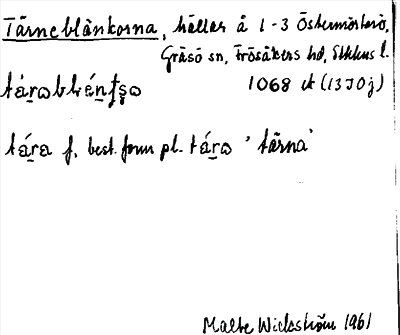 Tärneblänkorna, hällar å 1-3 Östermörtarö,
Gräsö sn, Frösåkers hd, Sthlms l.
1068 ck (13 I 0 j)
tára f, best. form pl. 'tärna'
Malte Wickström 1961